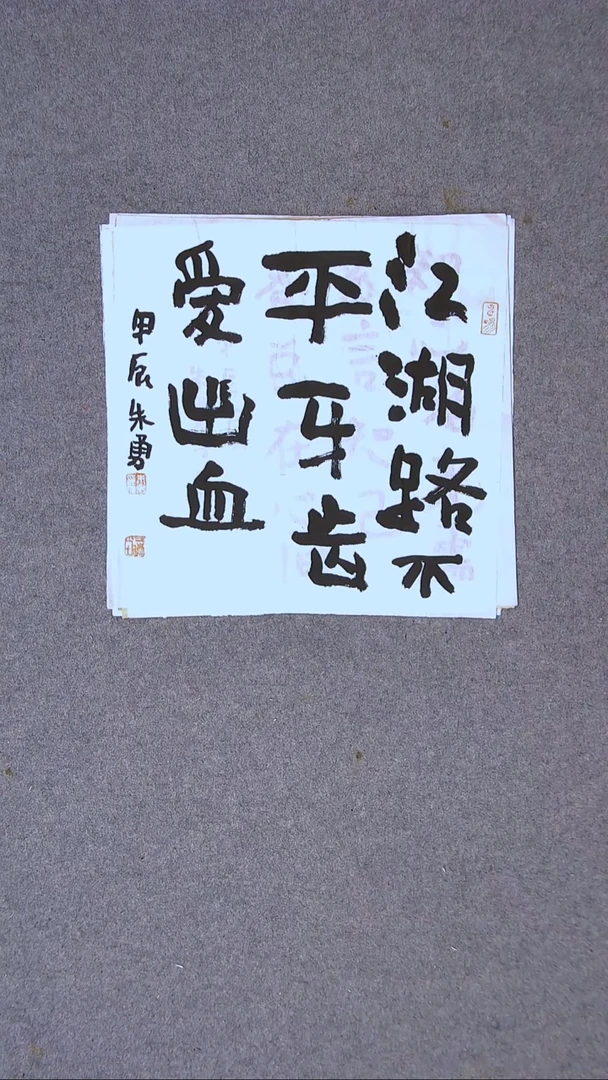 江湖路不
平牙齿
爱出血
甲辰朱勇